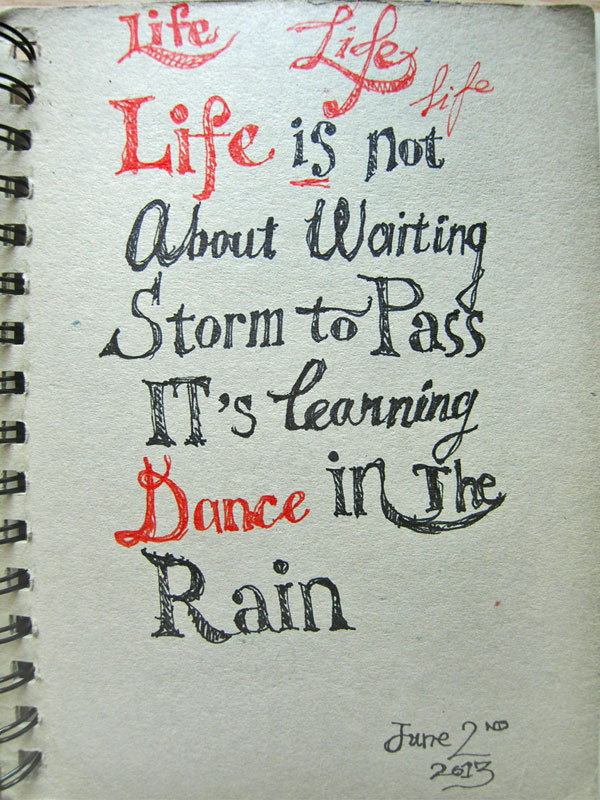 Life Life life
Life is not
About Waiting
Storm to Pass
IT's learning
Dance in The
Rain
June 2ND
2013